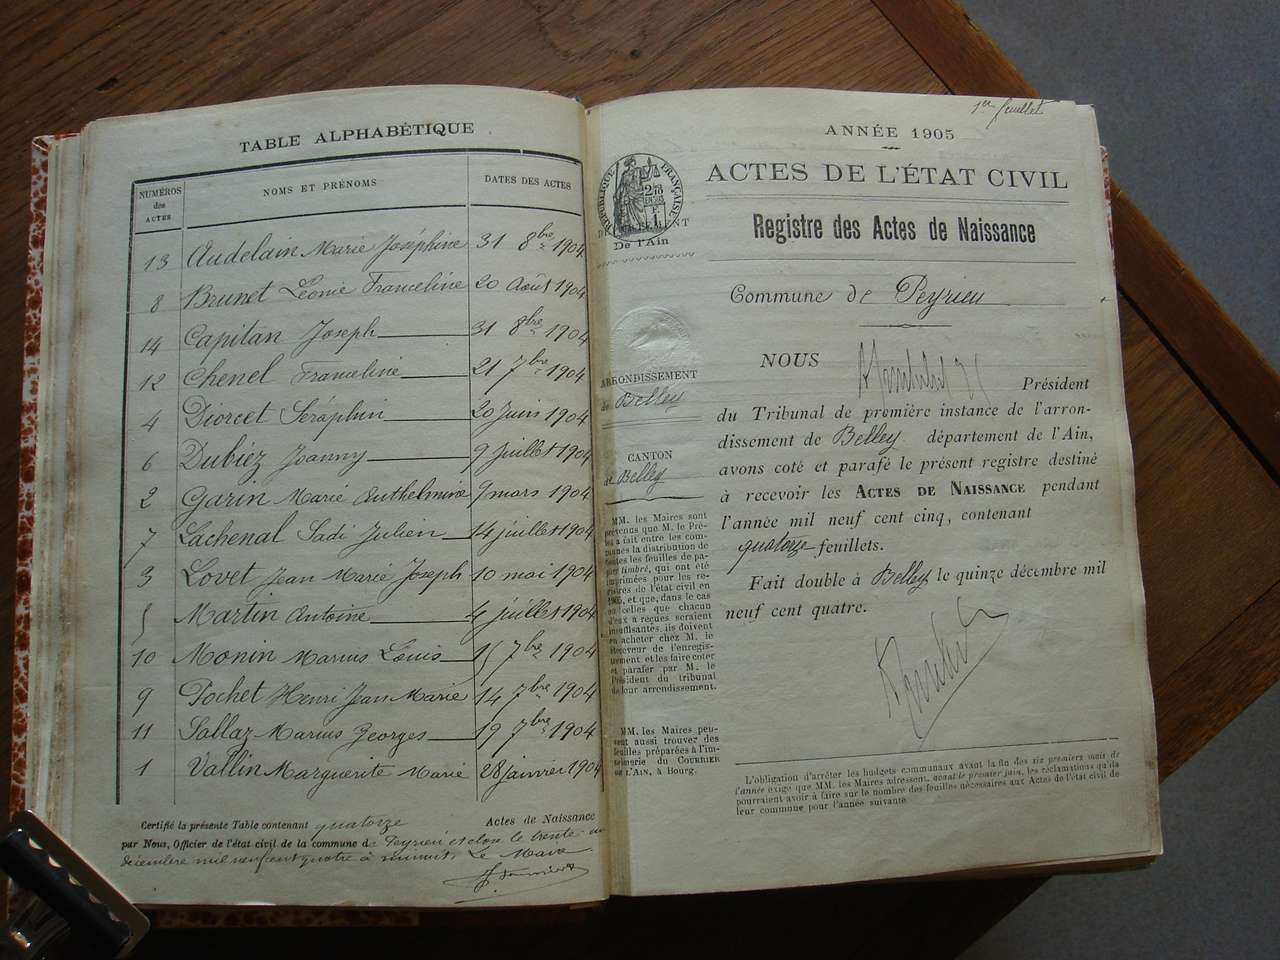 TABLE ALPHABÉTIQUE
NUMÉROS des ACTES NOMS ET PRÉNOMS DATES DES ACTES
13 Audelain Marie Joséphine 31 8bre 1904
8 Brunet Léonie Franceline 20 Août 1904
14 Capitan Joseph 31 8bre 1904
12 Chenel Franceline 21 7bre 1904
4 Diorcet Séraphin 20 Juin 1904
6 Dubiez Joanny 9 juillet 1904
2 Garin Marie Anthelmine 9 mars 1904
7 Lachenal Sadi Julien 14 juillet 1904
3 Lovet Jean Marie Joseph 10 mai 1904
5 Martin Antoine 4 juillet 1904
10 Monin Marius Louis 15 7bre 1904
9 Pochet Henri Jean Marie 14 7bre 1904
11 Sallaz Marius Georges 19 7bre 1904
1 Vallin Marguerite Marie 28 janvier 1904
Certifié la présente Table contenant quatorze Actes de Naissance
par Nous, Officier de l'état civil de la commune de Peyrieu et clos le trente un
décembre mil neuf cent quatre à minuit. Le Maire
1er feuillet
ANNÉE 1905
ACTES DE L'ÉTAT CIVIL
RÉPUBLIQUE FRANÇAISE
De l'Ain
Registre des Actes de Naissance
Commune de Peyrieu
ARRONDISSEMENT
de Belley
CANTON
de Belley
MM. les Maires sont
prévenus que M. le Pré-
fet a fait entre les com-
munes la distribution de
toutes les feuilles de pa-
pier timbré, qui ont été
imprimées pour les re-
gistres de l'état civil en
1905, et que, dans le cas
où celles que chacun
d'eux a reçues seraient
insuffisantes, ils doivent
en acheter chez M. le
Receveur de l'enregis-
trement et les faire coter
et parafer par M. le
Président du tribunal
de leur arrondissement.
MM. les Maires peu-
vent aussi trouver des
feuilles préparées à l'im-
primerie du COURRIER
DE L'AIN, à Bourg.
NOUS
Président
du Tribunal de première instance de l'arron-
dissement de Belley département de l'Ain,
avons coté et parafé le présent registre destiné
à recevoir les ACTES DE NAISSANCE pendant
l'année mil neuf cent cinq, contenant
quatorze feuillets.
Fait double à Belley le quinze décembre mil
neuf cent quatre.
L'obligation d'arrêter les budgets communaux avant la fin des six premiers mois de
l'année exige que MM. les Maires adressent, avant le premier juin, les réclamations qu'ils
pourraient avoir à faire sur le nombre des feuilles nécessaires aux Actes de l'état civil de
leur commune pour l'année suivante.